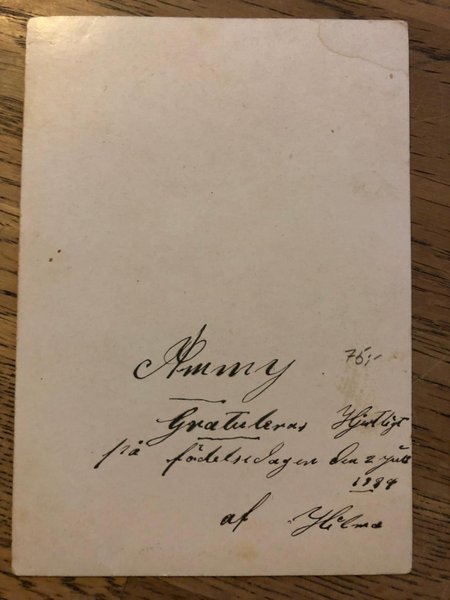 Ammy
75:-
Gratuleras Hjertligt
på födelsedagen den 2 Juli
1889
af Hilma